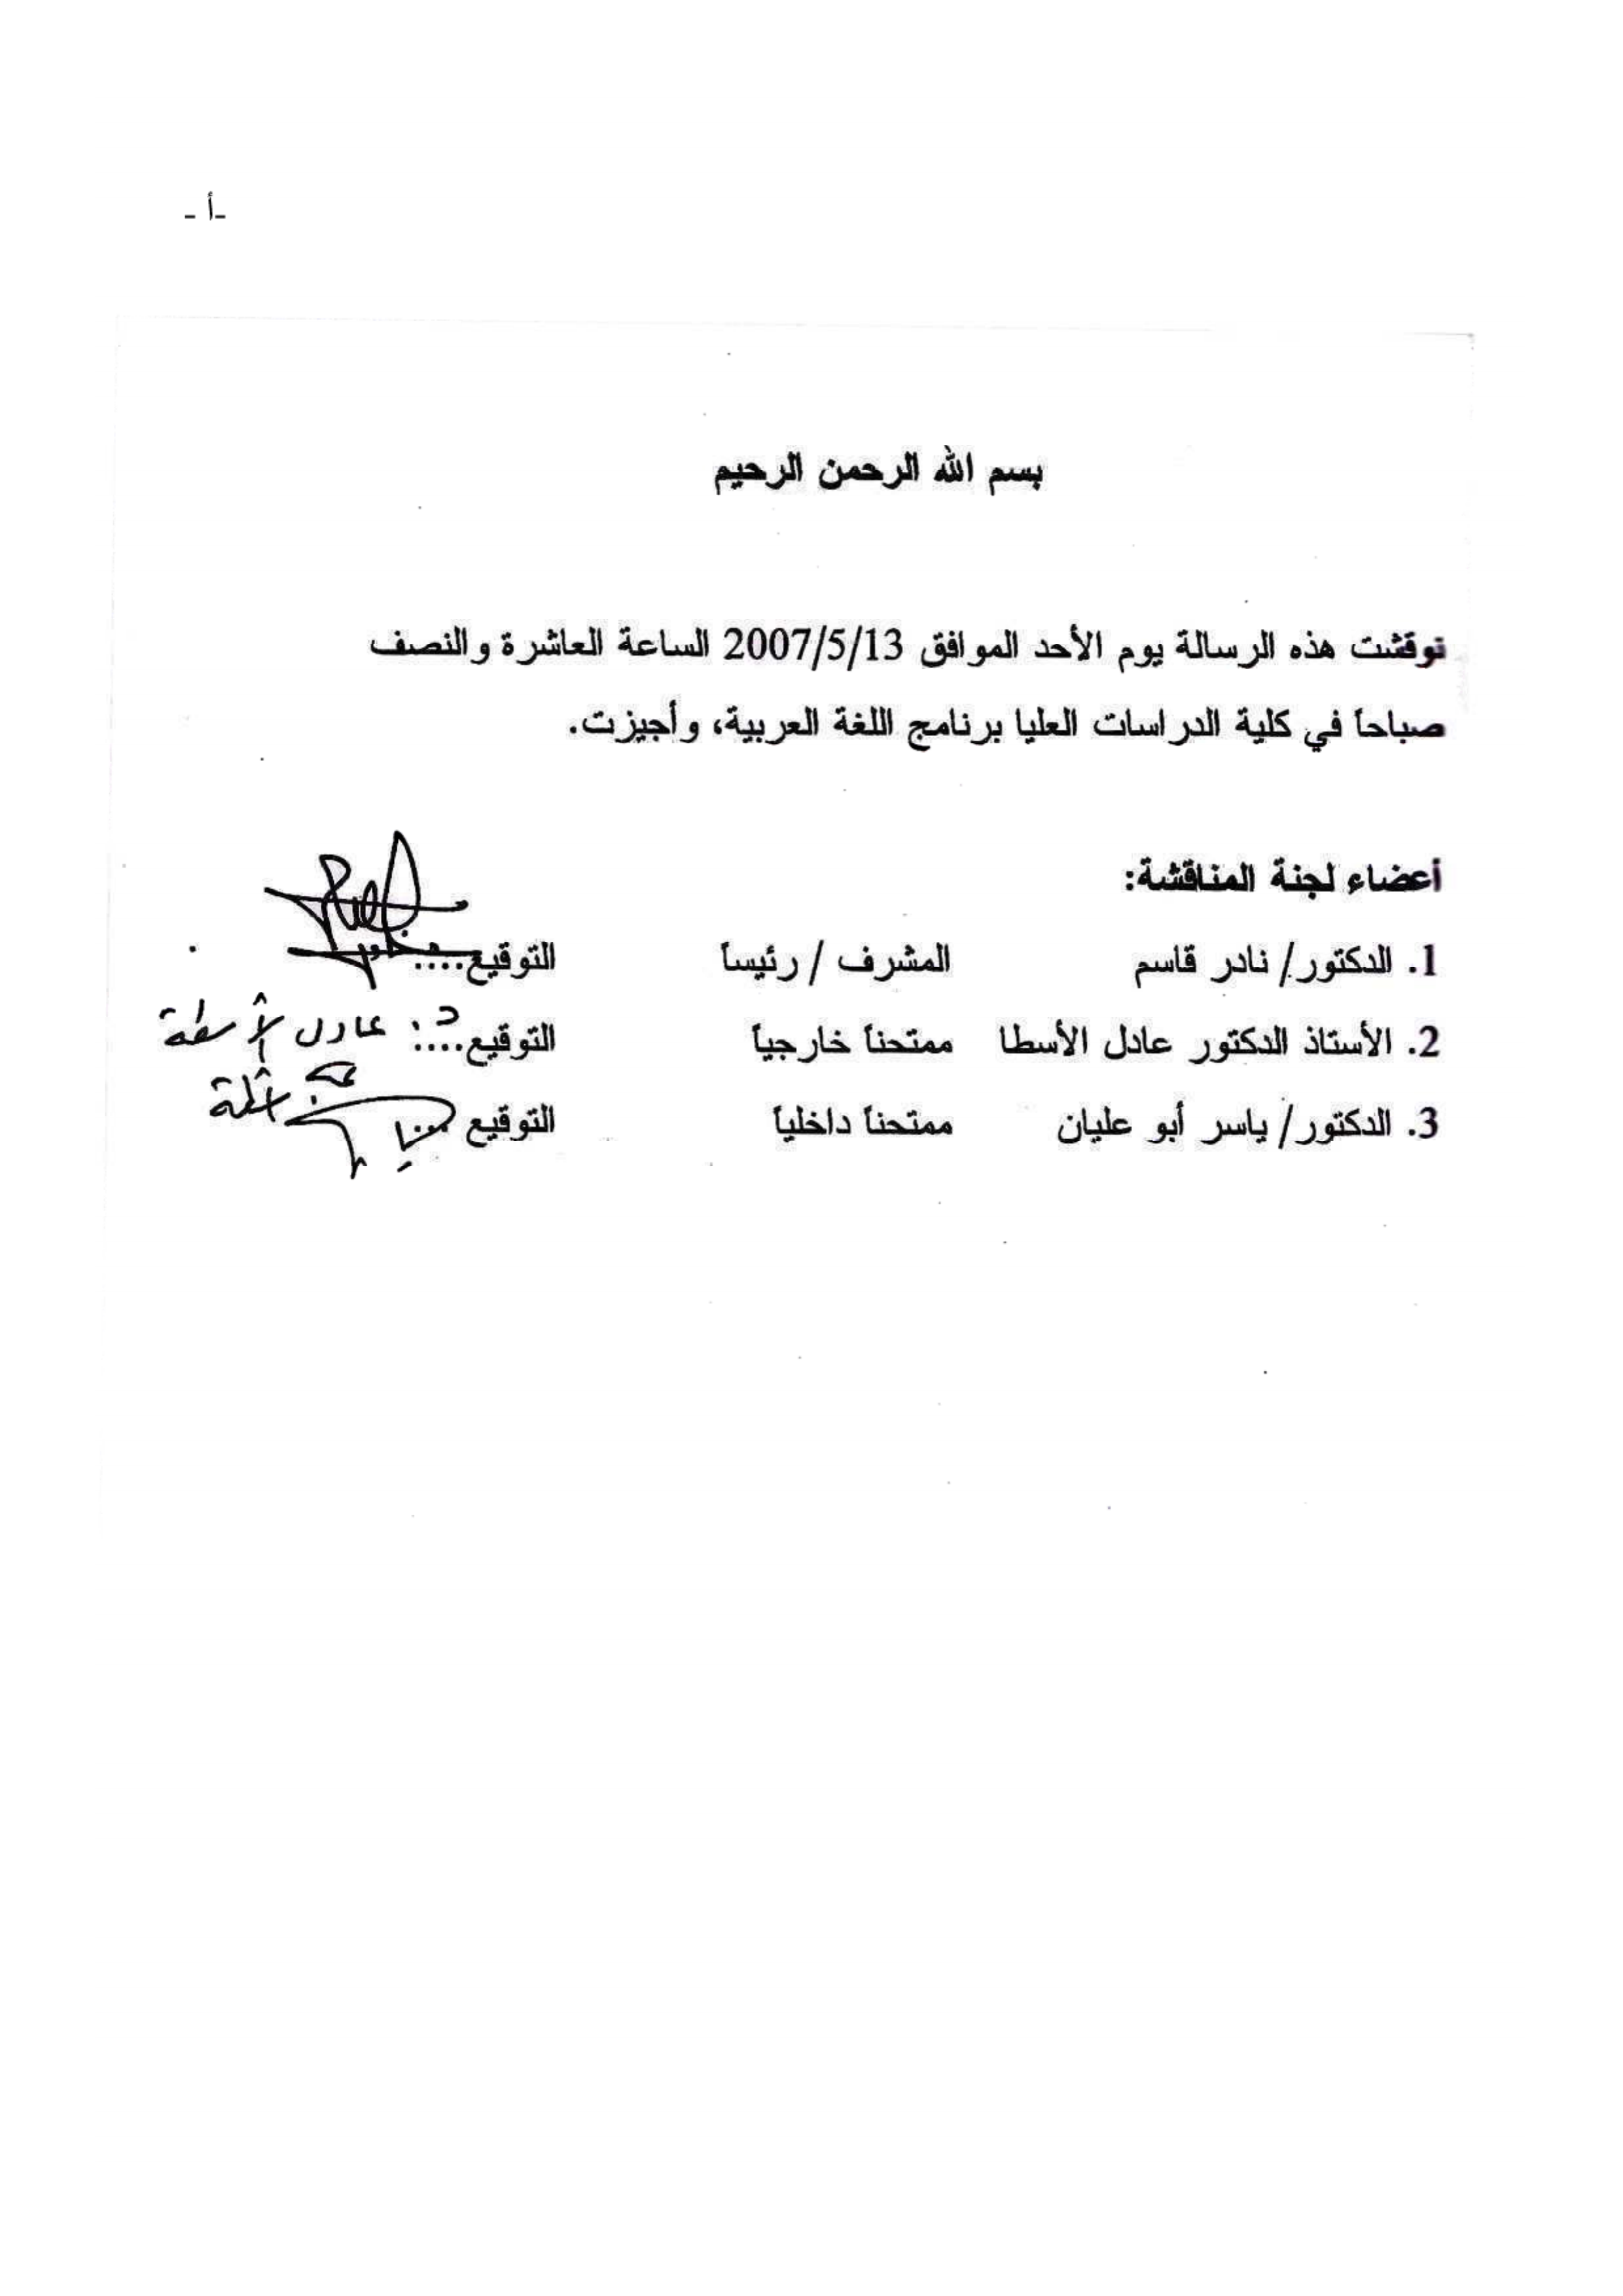 -أ -
بسم الله الرحمن الرحيم
نوقشت هذه الرسالة يوم الأحد الموافق 2007/5/13 الساعة العاشرة والنصف
صباحاً في كلية الدراسات العليا برنامج اللغة العربية، وأجيزت.
أعضاء لجنة المناقشة:
1. الدكتور/ نادر قاسم المشرف / رئيساً التوقيع....
2. الأستاذ الدكتور عادل الأسطا ممتحناً خارجياً التوقيع.... د. عادل الأسطة
3. الدكتور/ ياسر أبو عليان ممتحناً داخلياً التوقيع ...